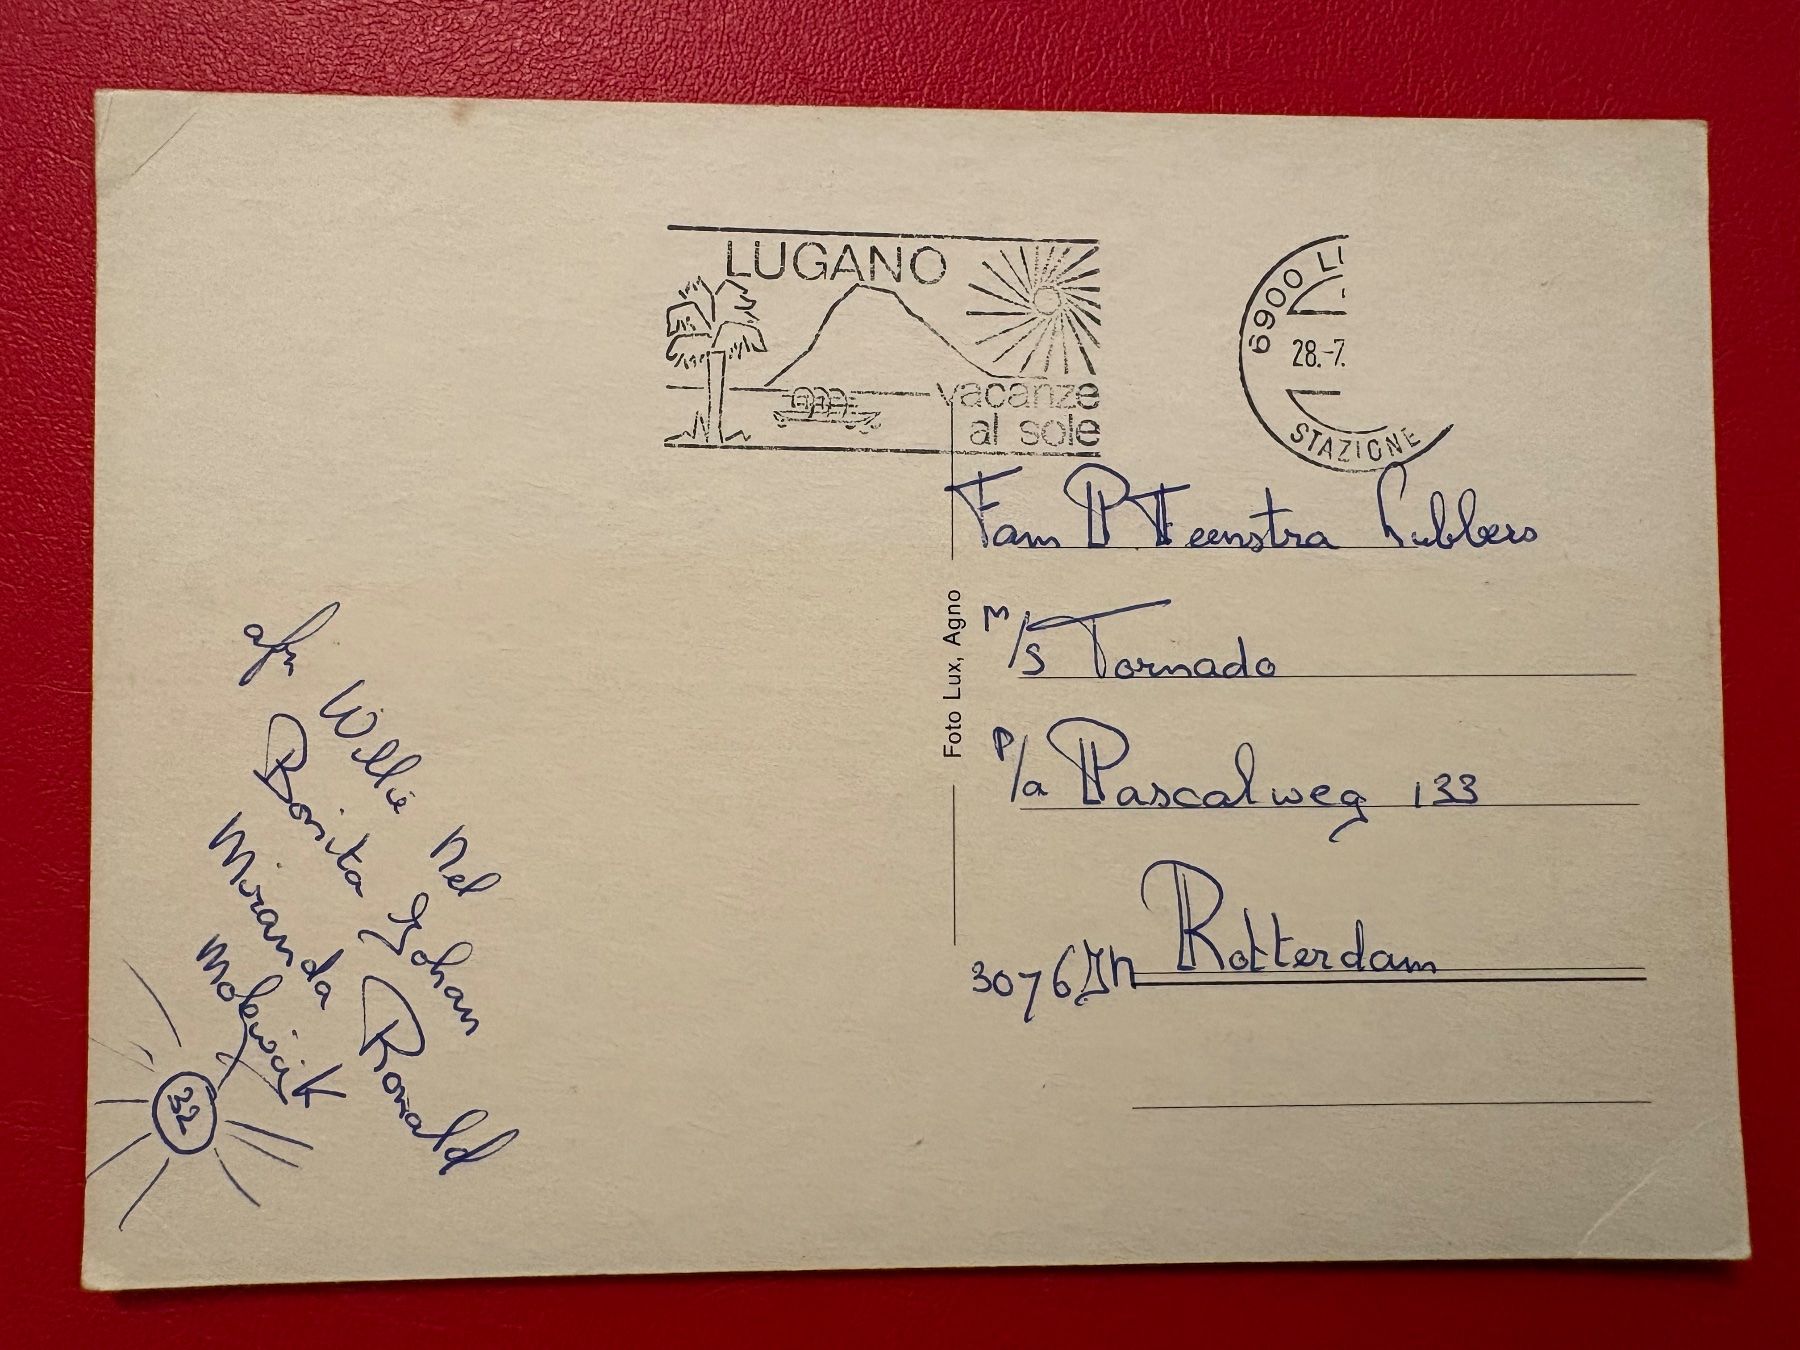 LUGANO
vacanze
al sole
6900 L
28.-7.
STAZIONE
Fam P Feenstra Lubbers
M/s Tornado
P/a Pascalweg 133
3076 JN Rotterdam
Foto Lux, Agno
afz
Willie Nel
Bonita Johan
Miranda Ronald
32